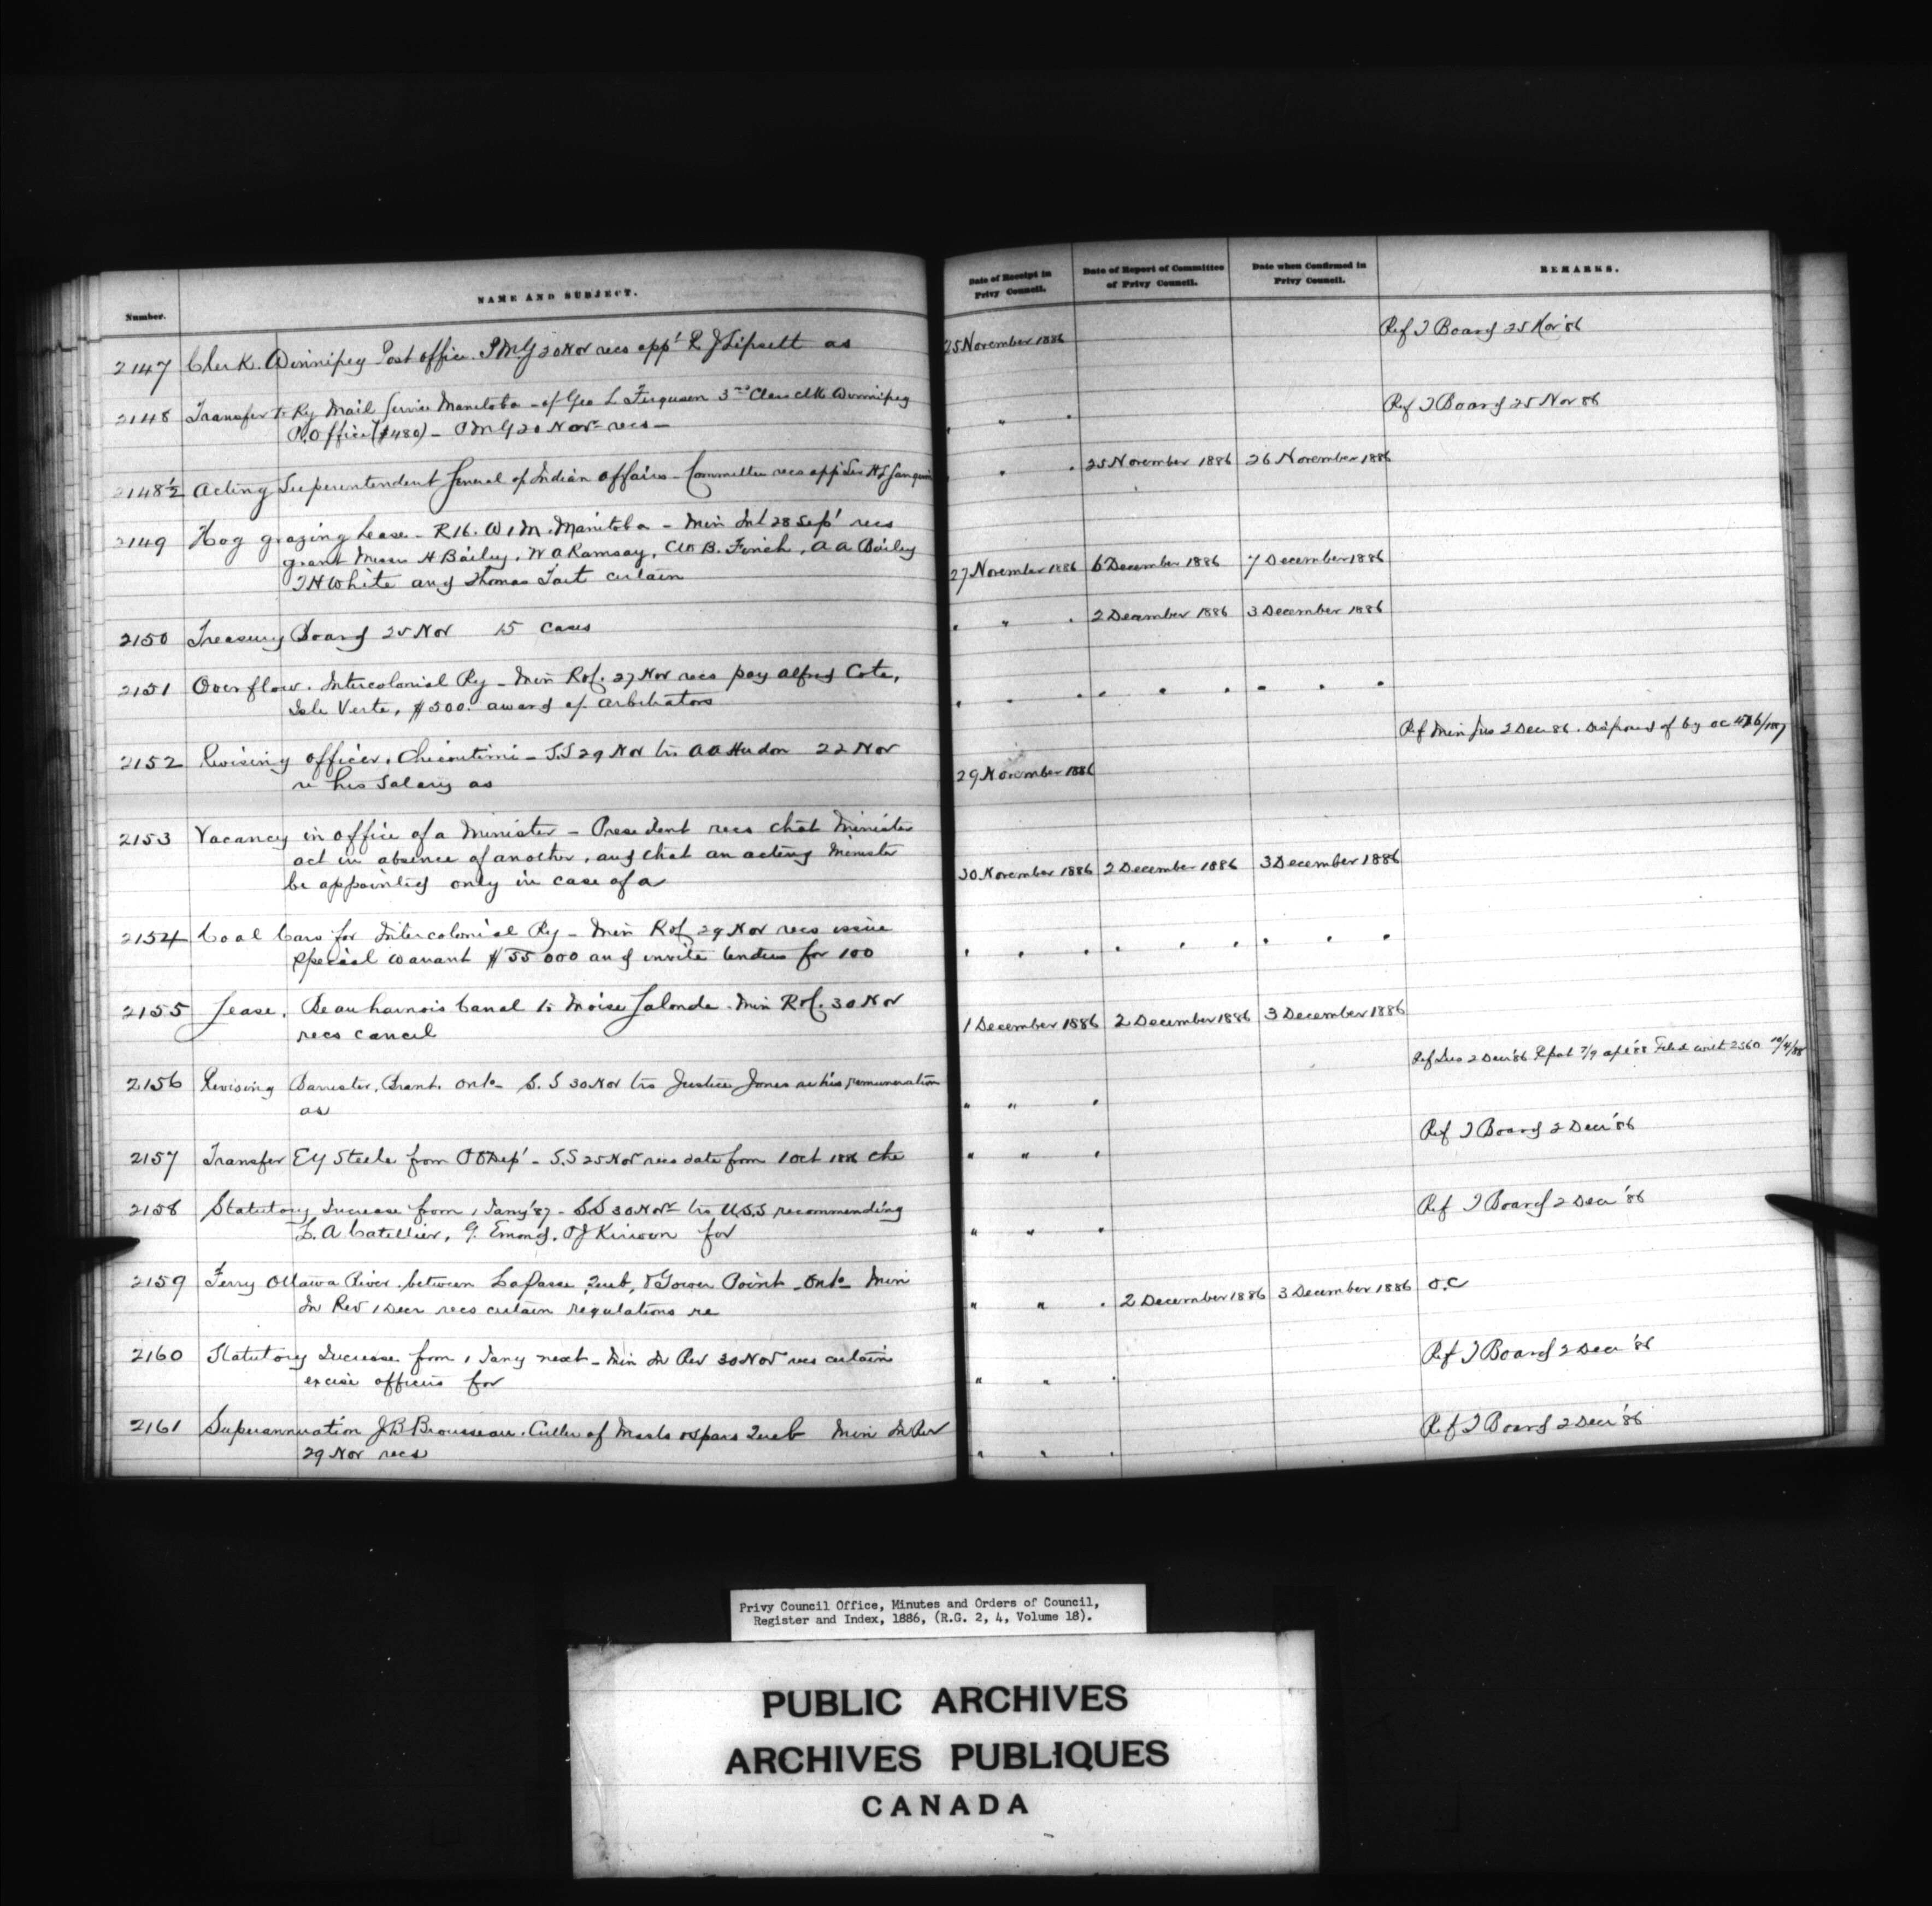 Number.
NAME AND SUBJECT.
Date of Receipt in Privy Council.
Date of Report of Committee of Privy Council.
Date when Confirmed in Privy Council.
REMARKS.
2147 Clerk. Winnipeg Post office. PMG 20 Nov recs appt R J Lipsett as 25 November 1886 Ref T Board 25 Nov '86
2148 Transfer to Ry Mail Service Manitoba - of Geo L Ferguson 3rd Class clk Winnipeg Ref T Board 25 Nov 86
P.O ffice ($480) - PMG 20 Nov - recs - " " "
2148½ Acting Superintendent General of Indian Affairs - Committee recs app Sir H L Langevin " " " 25 November 1886 26 November 1886
2149 Hog grazing Lease - R 16. W 1 M. Manitoba - Min Int 28 Sept recs
grant Messrs H Bailey, W A Ramsay, B. Finch, A A Bailey
T H White and Thomas Tait certain 27 November 1886 6 December 1886 7 December 1886
2150 Treasury Board 25 Nov 15 cases " " " 2 December 1886 3 December 1886
2151 Overflow. Intercolonial Ry - Min R of C. 27 Nov recs pay Alfred Cote,
Isle Verte, $500. award of arbitrators " " " " " " " " "
2152 Revising officer, Chicoutimi - S.S 29 Nov trs A A Hudon 22 Nov Ref Min Jus 2 Dec 86. Disposed of by OC
re his Salary as 29 November 1886
2153 Vacancy in office of a Minister - President recs that Minister
act in absence of another, and that an acting Minister
be appointed only in case of a 30 November 1886 2 December 1886 3 December 1886
2154 Coal Cars for Intercolonial Ry - Min R of C 29 Nov recs issue
special warrant $55 000 and invite tenders for 100 " " " " " " " " "
2155 Lease. Beauharnois Canal to Moise Lalonde. Min R of C. 30 Nov
recs cancel 1 December 1886 2 December 1886 3 December 1886
2156 Revising Barrister, Brant. Ont - S.S 30 Nov trs Justice Jones re his remuneration Ref Jus 2 Dec '86 Filed with 2360
as " " "
2157 Transfer E Y Steele from P O Dept - S.S 25 Nov recs date from 1 Oct 1886 the " " " Ref T Board 2 Decr '86
2158 Statutory Increase from 1 Jany '87 - S.S 30 Nov trs U.S.S recommending Ref T Board 2 Decr '86
L. A Catellier, G. Emond, P J Kirwan for " " "
2159 Ferry Ottawa River between LaPasse, Queb, & Gower Point Ont - Min
In Rev 1 Decr recs certain regulations re " " " 2 December 1886 3 December 1886 O.C
2160 Statutory Increase from 1 Jany next - Min In Rev 30 Nov recs certain Ref T Board 2 Decr '86
excise officers for " " "
2161 Superannuation J B Brousseau. Culler of Masts & Spars Queb Min In Rev Ref T Board 2 Decr '86
29 Nov recs " " "
Privy Council Office, Minutes and Orders of Council,
Register and Index, 1886, (R.G. 2, 4, Volume 18).
PUBLIC ARCHIVES
ARCHIVES PUBLIQUES
CANADA